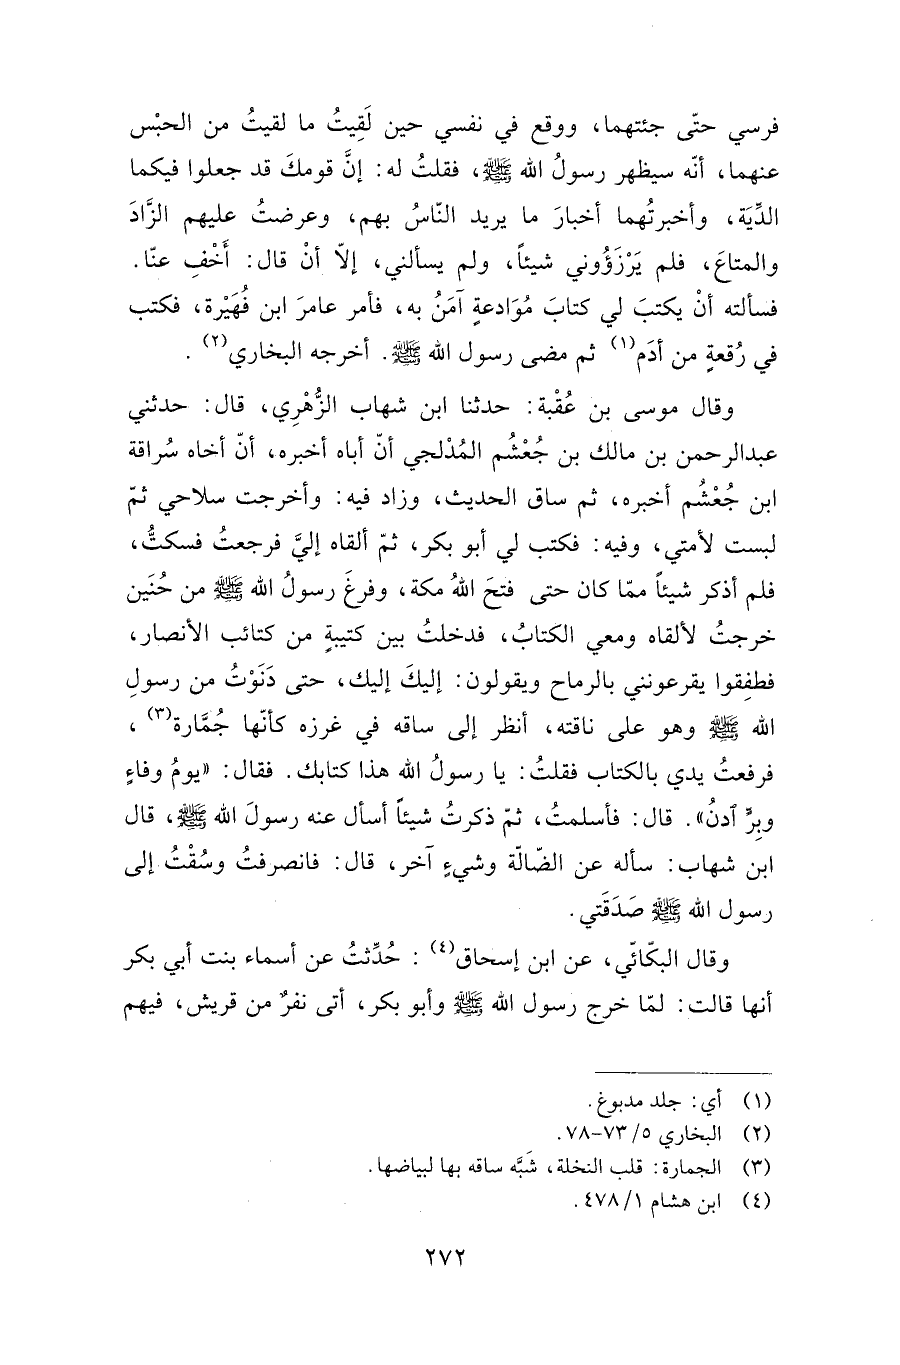 فرسي حتّى جئتهما، ووقع في نفسي حين لَقِيتُ ما لقيتُ من الحبْس
عنهما، أنّه سيظهر رسولُ الله ﷺ، فقلتُ له: إنَّ قومكَ قد جعلوا فيكما
الدِّيَة، وأخبرتُهما أخبارَ ما يريد النّاسُ بهم، وعرضتُ عليهم الزَّادَ
والمتاعَ، فلم يَرْزَؤُوني شيئاً، ولم يسألني، إلاّ أنْ قال: أَخْفِ عنّا.
فسألته أنْ يكتبَ لي كتابَ مُوَادعةٍ آمَنُ به، فأمر عامرَ ابن فُهَيْرة، فكتب
في رُقعةٍ من أدَم(١) ثم مضى رسول الله ﷺ. أخرجه البخاري(٢).
وقال موسى بن عُقْبة: حدثنا ابن شهاب الزُّهْرِي، قال: حدثني
عبدالرحمن بن مالك بن جُعْشُم المُدْلجي أنّ أباه أخبره، أنّ أخاه سُراقة
ابن جُعْشُم أخبره، ثم ساق الحديث، وزاد فيه: وأخرجت سلاحي ثمّ
لبست لأمتي، وفيه: فكتب لي أبو بكر، ثمّ ألقاه إليَّ فرجعتُ فسكتُّ،
فلم أذكر شيئاً ممّا كان حتى فتحَ اللهُ مكة، وفرغَ رسولُ الله ﷺ من حُنَين
خرجتُ لألقاه ومعي الكتابُ، فدخلتُ بين كتيبةٍ من كتائب الأنصار،
فطفِقوا يقرعونني بالرماح ويقولون: إليكَ إليك، حتى دَنَوْتُ من رسولِ
الله ﷺ وهو على ناقته، أنظر إلى ساقه في غرزه كأنّها جُمَّارة(٣)،
فرفعتُ يدي بالكتاب فقلتُ: يا رسولُ الله هذا كتابك. فقال: «يومُ وفاءٍ
وبِرٍّ ٱدنُ». قال: فأسلمتُ، ثمّ ذكرتُ شيئاً أسأل عنه رسولَ الله ﷺ، قال
ابن شهاب: سأله عن الضّالّة وشيءٍ آخر، قال: فانصرفتُ وسُقْتُ إلى
رسول الله ﷺ صَدَقَتي.
وقال البكّائّي، عن ابن إسحاق(٤): حُدِّثتُ عن أسماء بنت أبي بكر
أنها قالت: لمّا خرج رسول الله ﷺ وأبو بكر، أتى نفرٌ من قريش، فيهم
(١) أي: جلد مدبوغ.
(٢) البخاري ٥/ ٧٣-٧٨.
(٣) الجمارة: قلب النخلة، شَبَّه ساقه بها لبياضها.
(٤) ابن هشام ١/ ٤٧٨.
٢٧٢